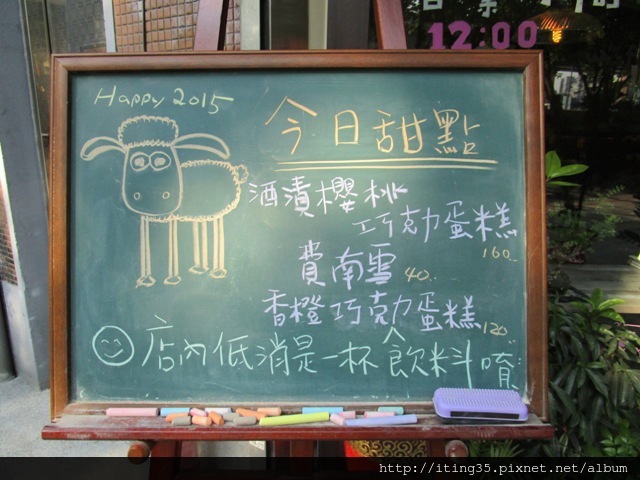 12:00
Happy 2015
今日甜點
酒漬櫻桃
巧克力蛋糕
160
費南雪 40
香橙巧克力蛋糕 120
店內低消是一杯飲料唷
http://iting35.pixnet.net/album